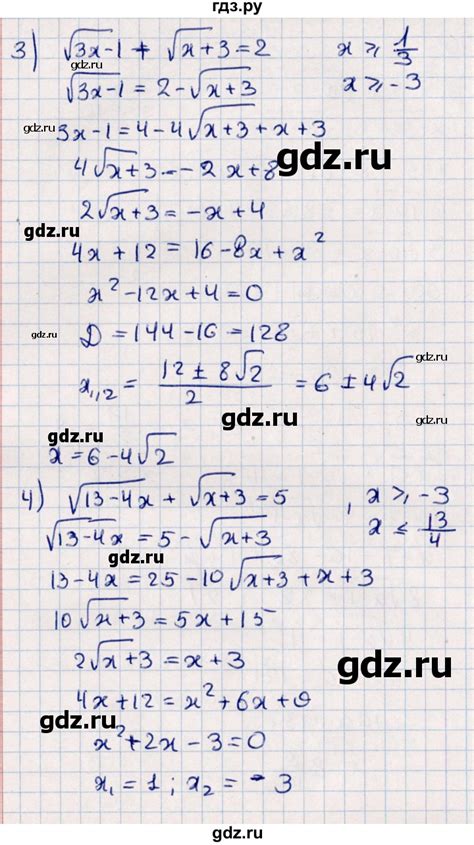 гдз.ру
3) √3x-1 + √x+3 = 2   x ⩾ 1/3
gdz.ru
√3x-1 = 2-√x+3   x ⩾ -3
gdz.ru
3x-1=4-4√x+3+x+3
gdz.ru
4√x+3 = -2x+8
2√x+3 = -x+4
gdz.ru
4x+12 = 16-8x+x²
gdz.ru
x²-12x+4=0
gdz.ru
D = 144-16=128
gdz.ru
x₁,₂ = (12 ± 8√2)/2 = 6 ± 4√2
gdz.ru
gdz.ru
x = 6-4√2
4) √13-4x + √x+3 = 5 , x ⩾ -3
√13-4x = 5 - √x+3   x ⩽ 13/4
gdz.ru
13-4x = 25-10√x+3 + x+3
gdz.ru
10√x+3 = 5x+15
2√x+3 = x+3
gdz.ru
gdz.ru
4x+12 = x²+6x+9
gdz.ru
x²+2x-3=0
gdz.ru
x₁ = 1 ; x₂ = -3
gdz.ru
gdz.ru